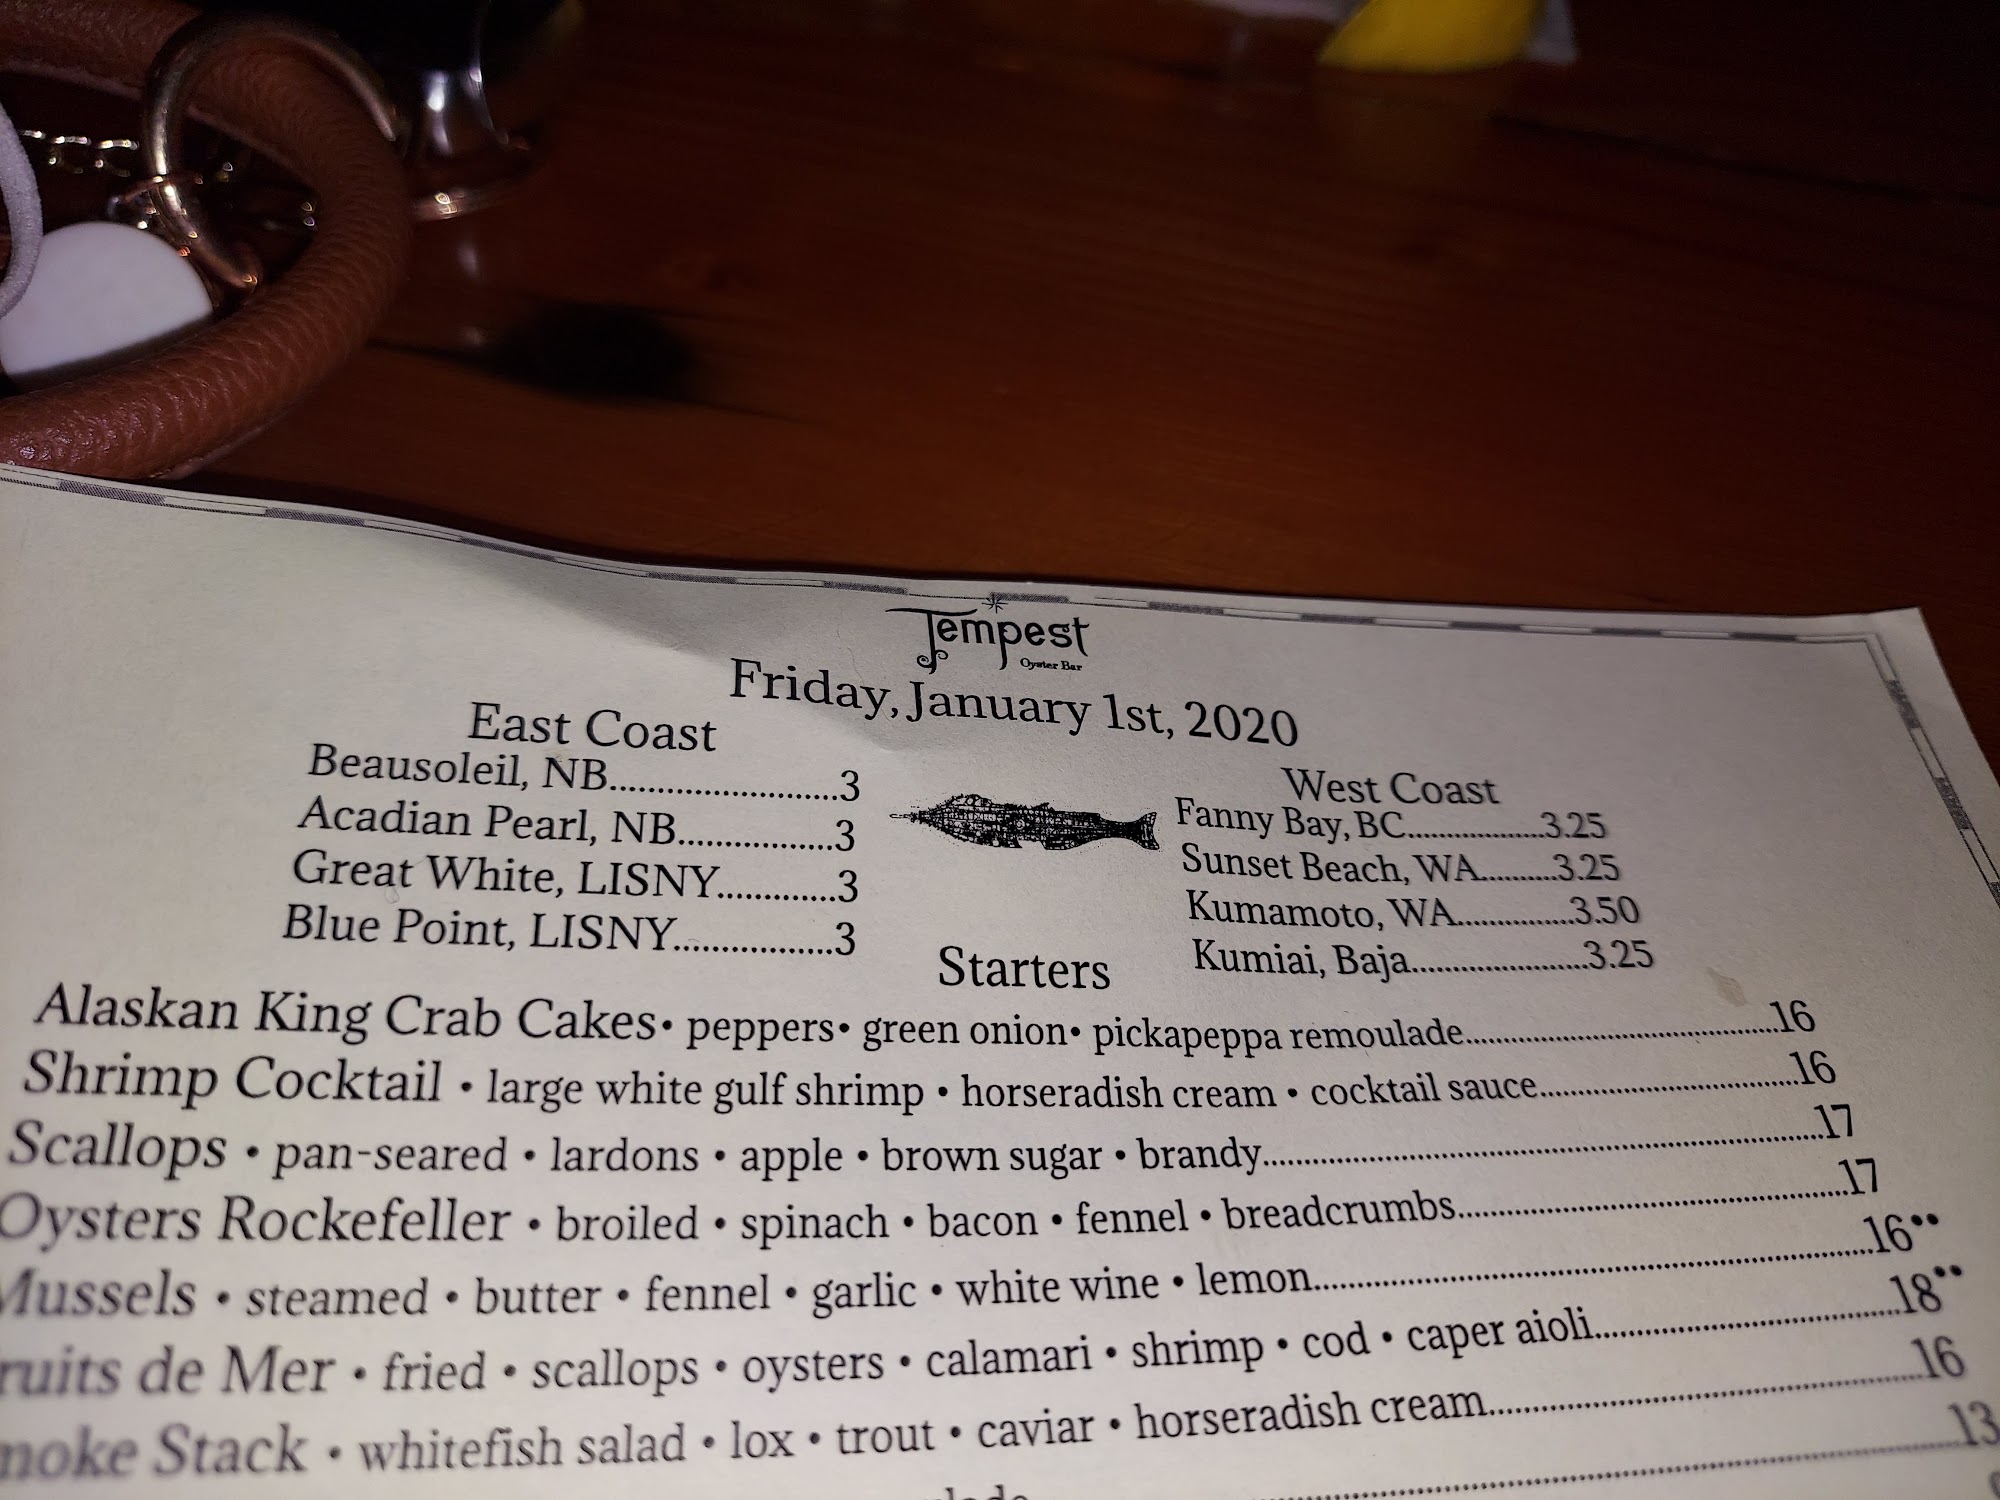 Tempest
Oyster Bar
Friday, January 1st, 2020
East Coast
Beausoleil, NB........................3
Acadian Pearl, NB................3
Great White, LISNY............3
Blue Point, LISNY.................3
West Coast
Fanny Bay, BC.................3.25
Sunset Beach, WA..........3.25
Kumamoto, WA..............3.50
Kumiai, Baja......................3.25
Starters
Alaskan King Crab Cakes• peppers• green onion• pickapeppa remoulade........................................16
Shrimp Cocktail • large white gulf shrimp • horseradish cream • cocktail sauce.................................16
Scallops • pan-seared • lardons • apple • brown sugar • brandy.........................................................................17
Oysters Rockefeller • broiled • spinach • bacon • fennel • breadcrumbs..................................................17
Mussels • steamed • butter • fennel • garlic • white wine • lemon.........................................................................16••
de Mer • fried • scallops • oysters • calamari • shrimp • cod • caper aioli........................................18••
Stack • whitefish salad • lox • trout • caviar • horseradish cream.......................................................16
13